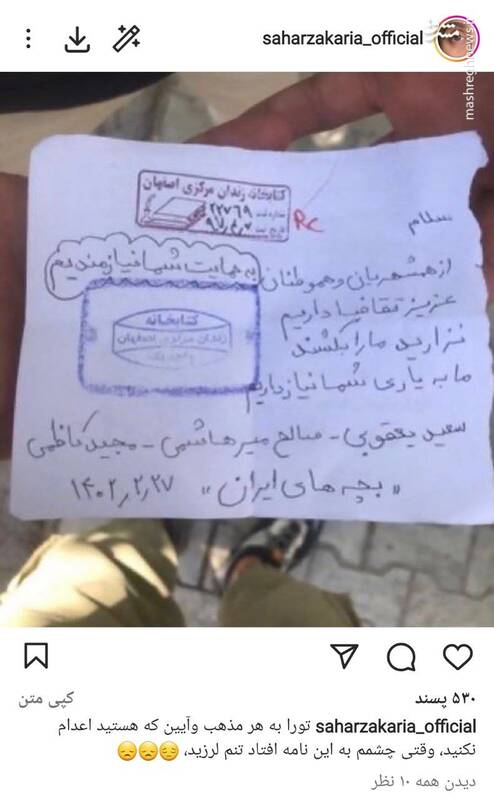 saharzakaria_official
mashreghnews.ir
کتابخانه زندان مرکزی اصفهان
شماره ثبت ۲۲۷۶۹
تاریخ ثبت
RC
سلام
از همشهریان و هموطنان به حمایت شما نیازمندیم
عزیز تقاضا داریم
نزارید ما را بکشند
ما به یاری شما نیاز داریم
کتابخانه
زندان مرکزی اصفهان
سعید یعقوبی - صالح میرهاشمی - مجید کاظمی
«بچه های ایران» ۱۴۰۲٫۲٫۲۷
۵۳۰ پسند
کپی متن
saharzakaria_official تورا به هر مذهب وآیین که هستید اعدام
نکنید، وقتی چشمم به این نامه افتاد تنم لرزید، 😔😞😞
دیدن همه ۱۰ نظر